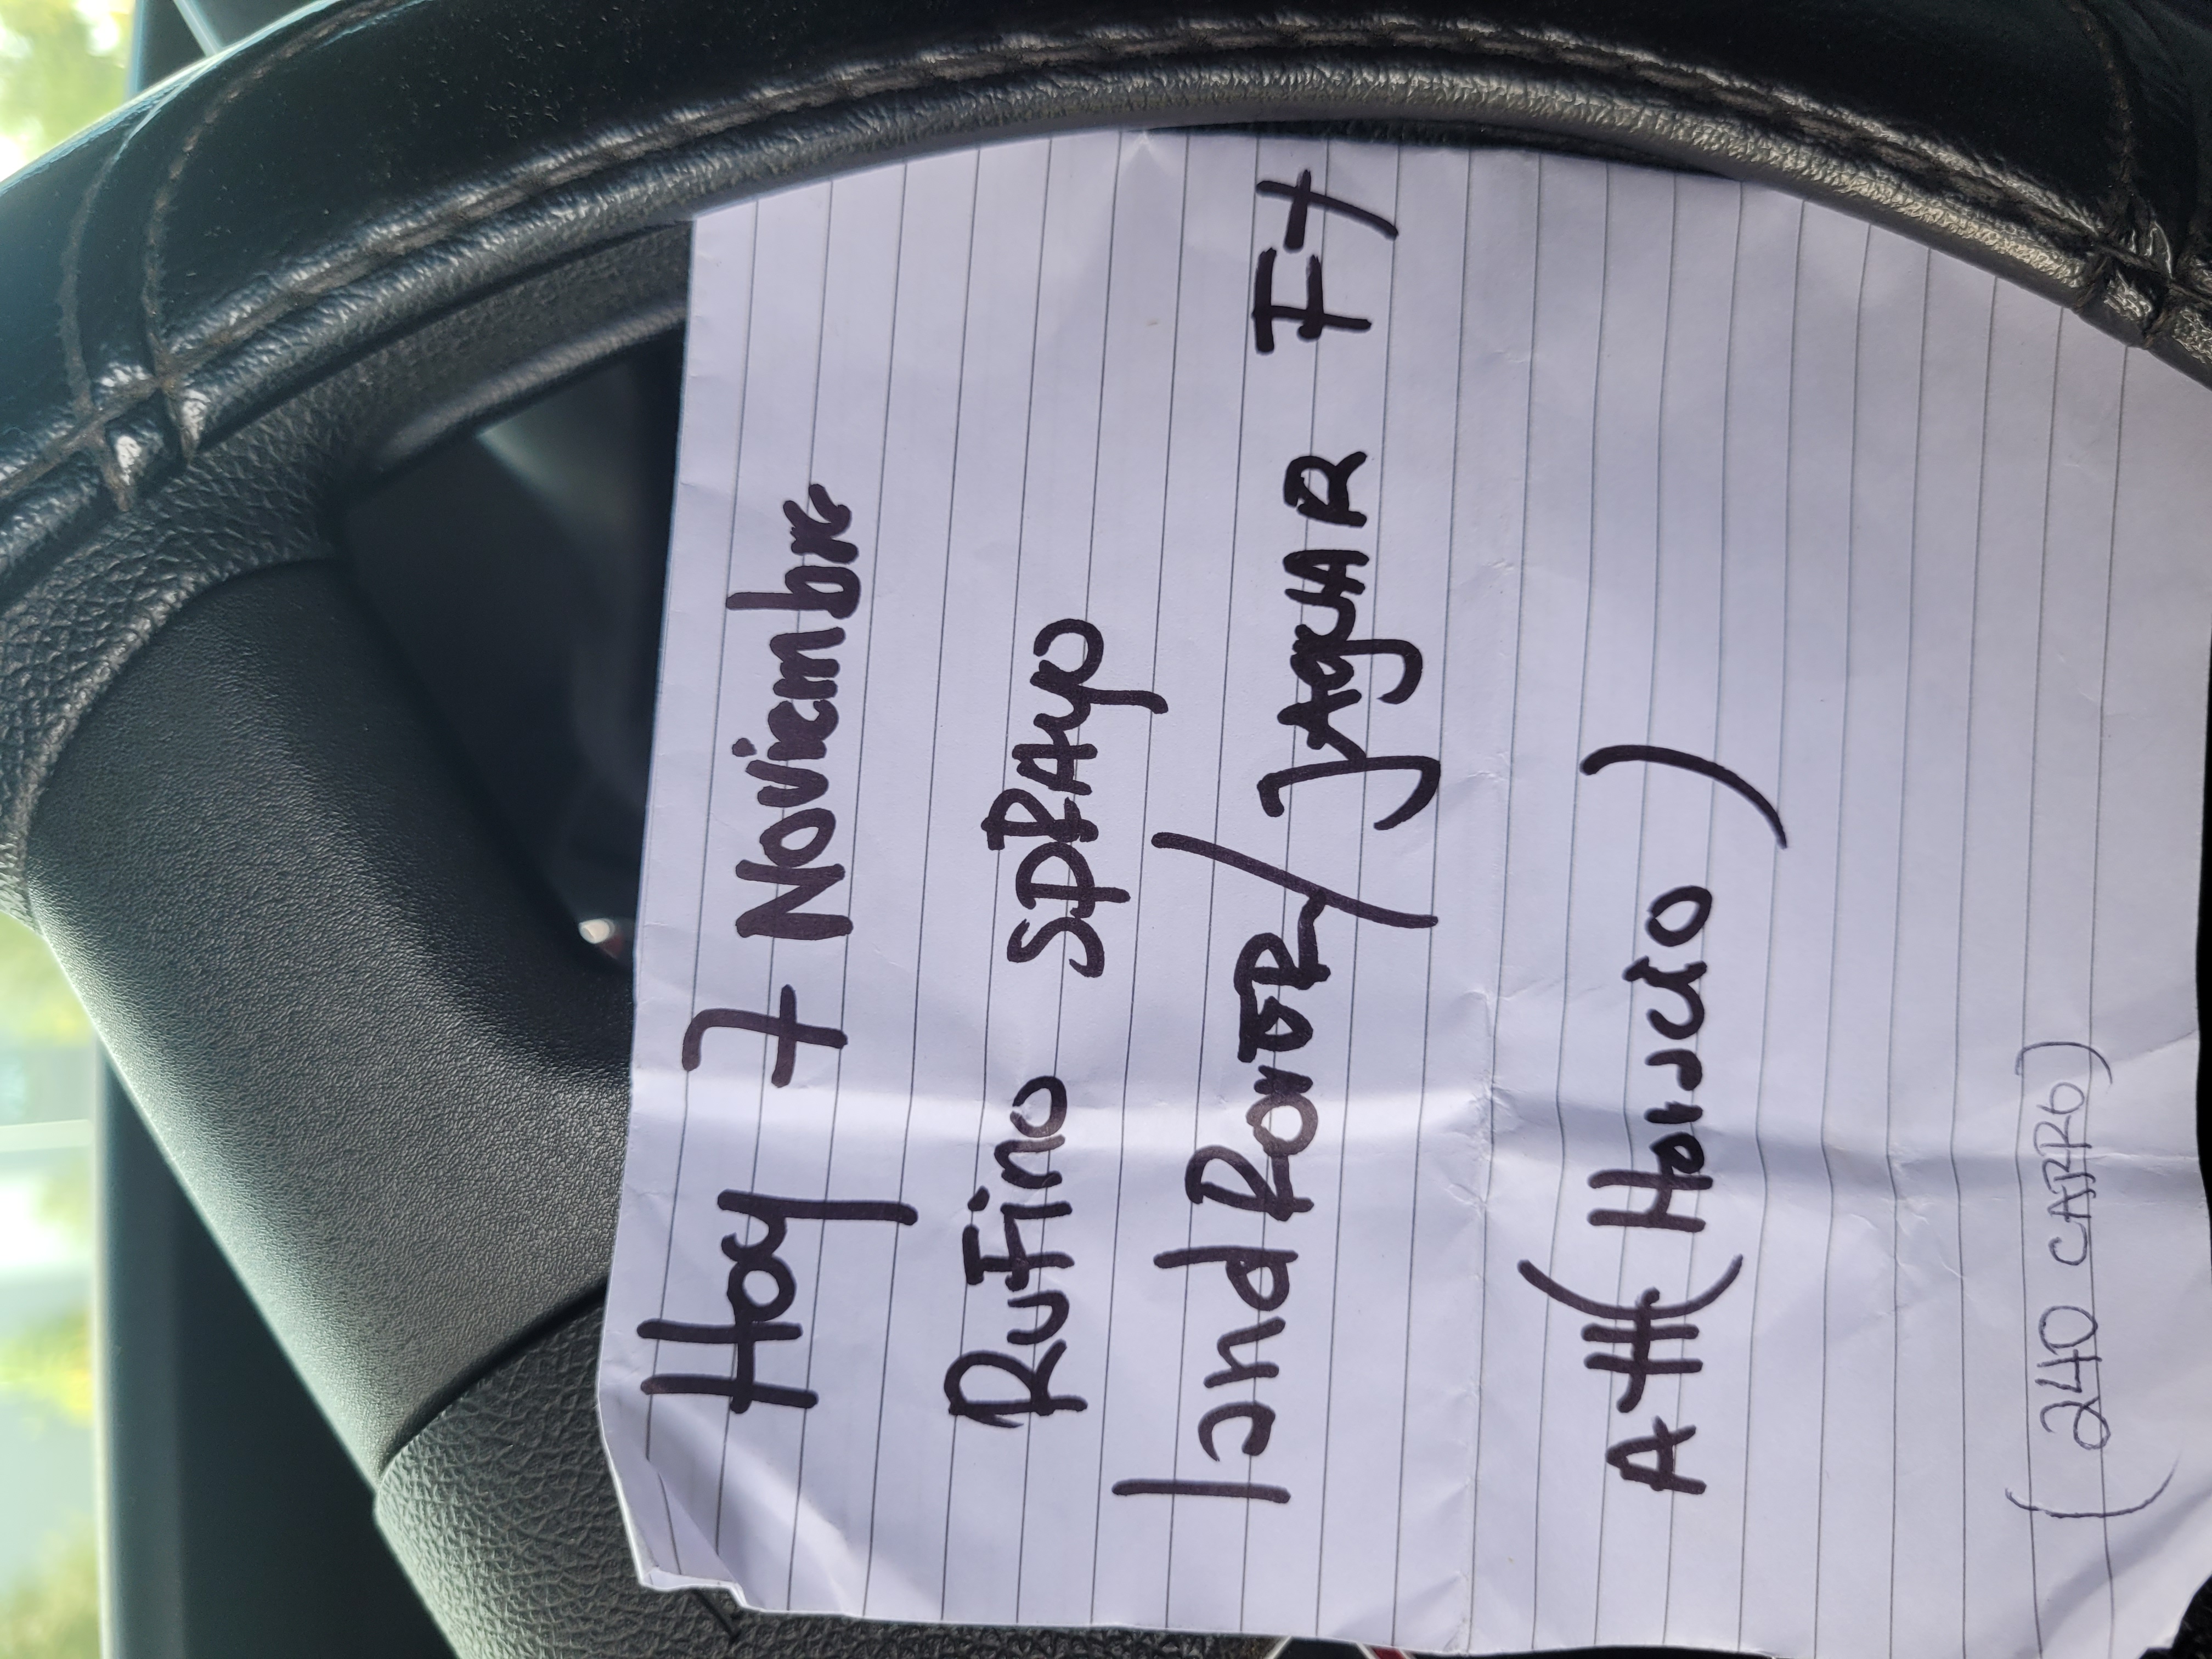 Hoy 7 Noviembre
Rufino SPRAyo
land RovER/ JAguAR F7
(240 CARRO)